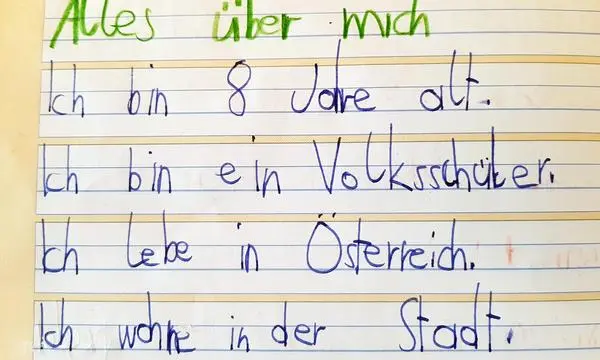 Alles über mich
Ich bin 8 Jahre alt.
Ich bin ein Volksschüler.
Ich lebe in Österreich.
Ich wohne in der Stadt.